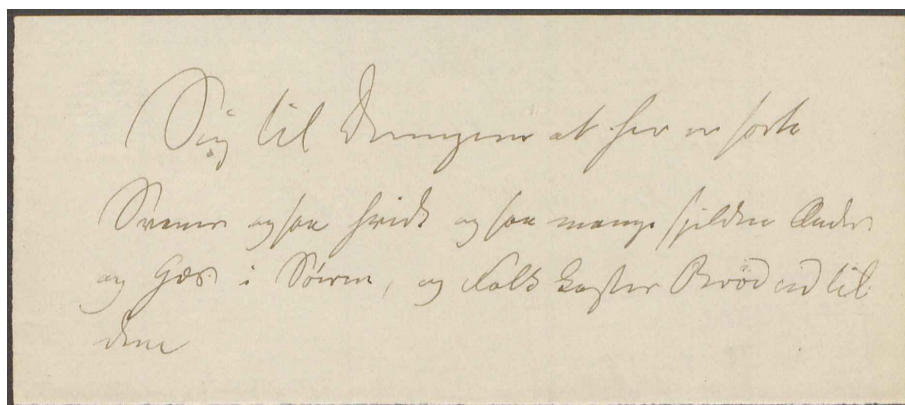 Siig til Drengene at her er sorte
Svaner ogsaa hvide og saa mange sjeldne Ænder
og Gæs i Søerne, og Folk kaster Brød ud til
dem